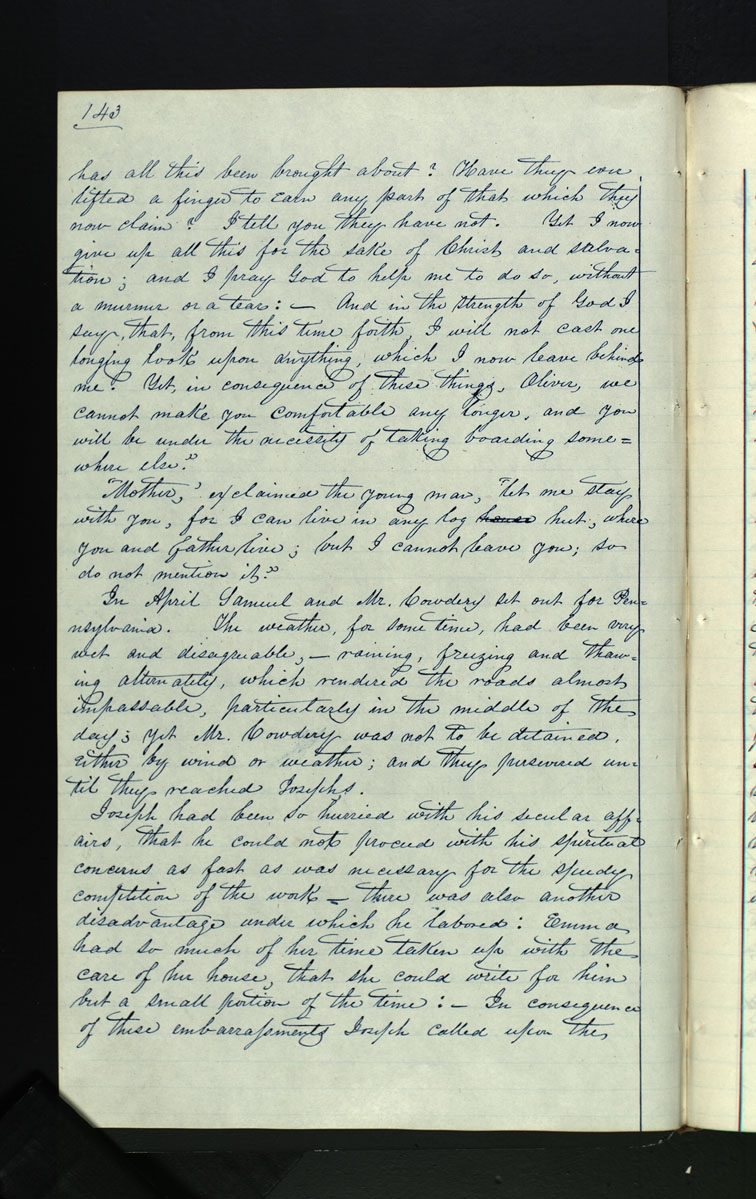 143
has all this been brought about? Have they ever
lifted a finger to earn any part of that which they
now claim? I tell you they have not. Yet I now
give up all this for the sake of Christ and salva=
tion; and I pray God to help me to do so, without
a murmur or a tear:— And in the strength of God I
say, that, from this time forth, I will not cast one
longing look upon anything, which I now leave behind
me. Yet, in consequence of these things, Oliver, we
cannot make you comfortable any longer, and you
will be under the necessity of taking boarding some=
where else."
"Mother," exclaimed the young man, "let me stay
with you, for I can live in any log house hut, where
you and father live; but I cannot leave you; so
do not mention it."
In April Samuel and Mr. Cowdery set out for Pen=
nsylvania. The weather, for some time, had been very
wet and disagreeable,— raining, freezing and thaw=
ing alternately, which rendered the roads almost
impassable, particularly in the middle of the
day; yet Mr. Cowdery was not to be detained,
either by wind or weather; and they persevered un=
til they reached Josephs.
Joseph had been so hurried with his secular aff=
airs, that he could not proceed with his spiritual
concerns as fast as was necessary for the speedy
completion of the work — there was also another
disadvantage under which he labored: Emma
had so much of her time taken up with the
care of her house, that she could write for him
but a small portion of the time:— In consequence
of these embarrassments Joseph called upon the